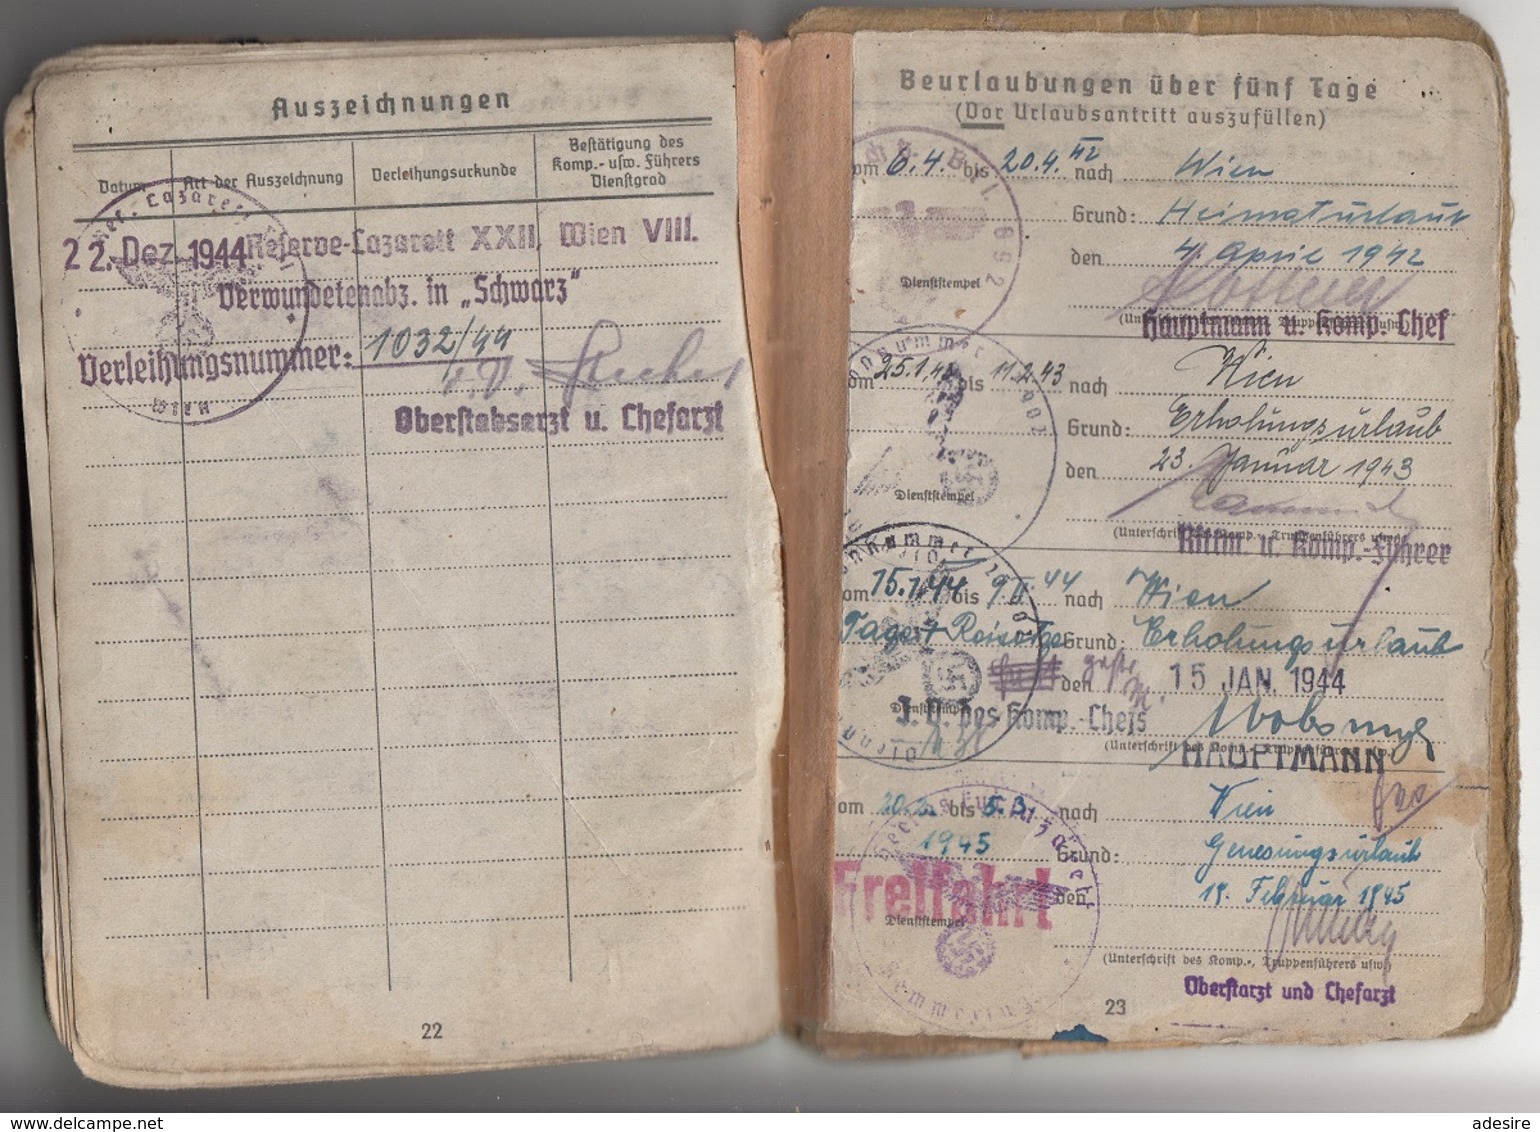 Auszeichnungen
Datum Art der Auszeichnung Verleihungsurkunde Bestätigung des Komp.- usw. Führers Dienstgrad
22. Dez. 1944 Reserve-Lazarett XXII, Wien VIII.
Verwundetenabz. in „Schwarz"
Verleihungsnummer: 1032/44
Oberstabsarzt u. Chefarzt
22
Beurlaubungen über fünf Tage
(Vor Urlaubsantritt auszufüllen)
om 6.4. bis 20.4. 42 nach Wien
Grund: Heimaturlaub
den 4. April 1942
Dienststempel
(Unterschrift des Komp.-, Truppenführers usw.)
Hauptmann u. Komp.-Chef
om 25.1.43 bis 11.2.43 nach Wien
Grund: Erholungsurlaub
den 23. Januar 1943
Dienststempel
(Unterschrift des Komp.-, Truppenführers usw.)
Rittm. u. Komp.-Führer
om 15.1.44 bis 9.II.44 nach Wien
Tage + Reisetge Grund: Erholungsurlaub
den 15 JAN. 1944
Dienststempel
J. V. des Komp.-Chefs
(Unterschrift des Komp.-, Truppenführers usw.)
HAUPTMANN
om 20.2. bis 5.3. nach Wien
1945 Grund: Genesungsurlaub
Freifahrt den 18. Februar 1945
Dienststempel
(Unterschrift des Komp.-, Truppenführers usw.)
Oberstarzt und Chefarzt
23
www.delcampe.net
adesire